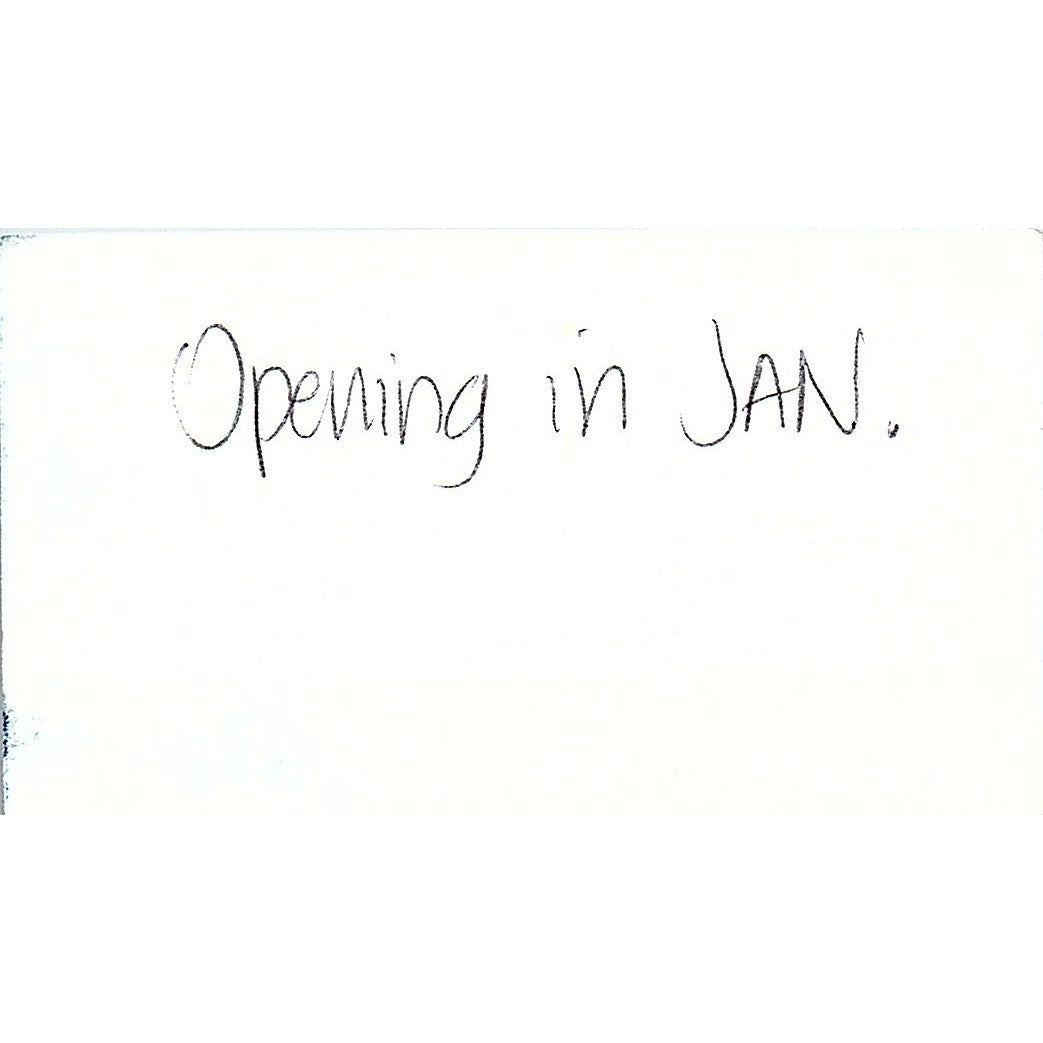 Opening in JAN.